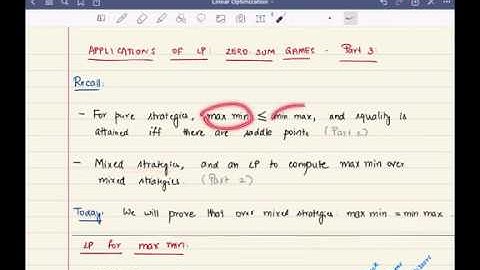 Linear Optimization
APPLICATIONS OF LP: ZERO-SUM GAMES - Part 3
Recall:
- For pure strategies, max min ≤ min max, and equality is
attained iff there are saddle points (Part 1)
- Mixed strategies, and an LP to compute max min over
mixed strategies. (Part 2)
Today: We will prove that over mixed strategies max min = min max.
LP for max min: